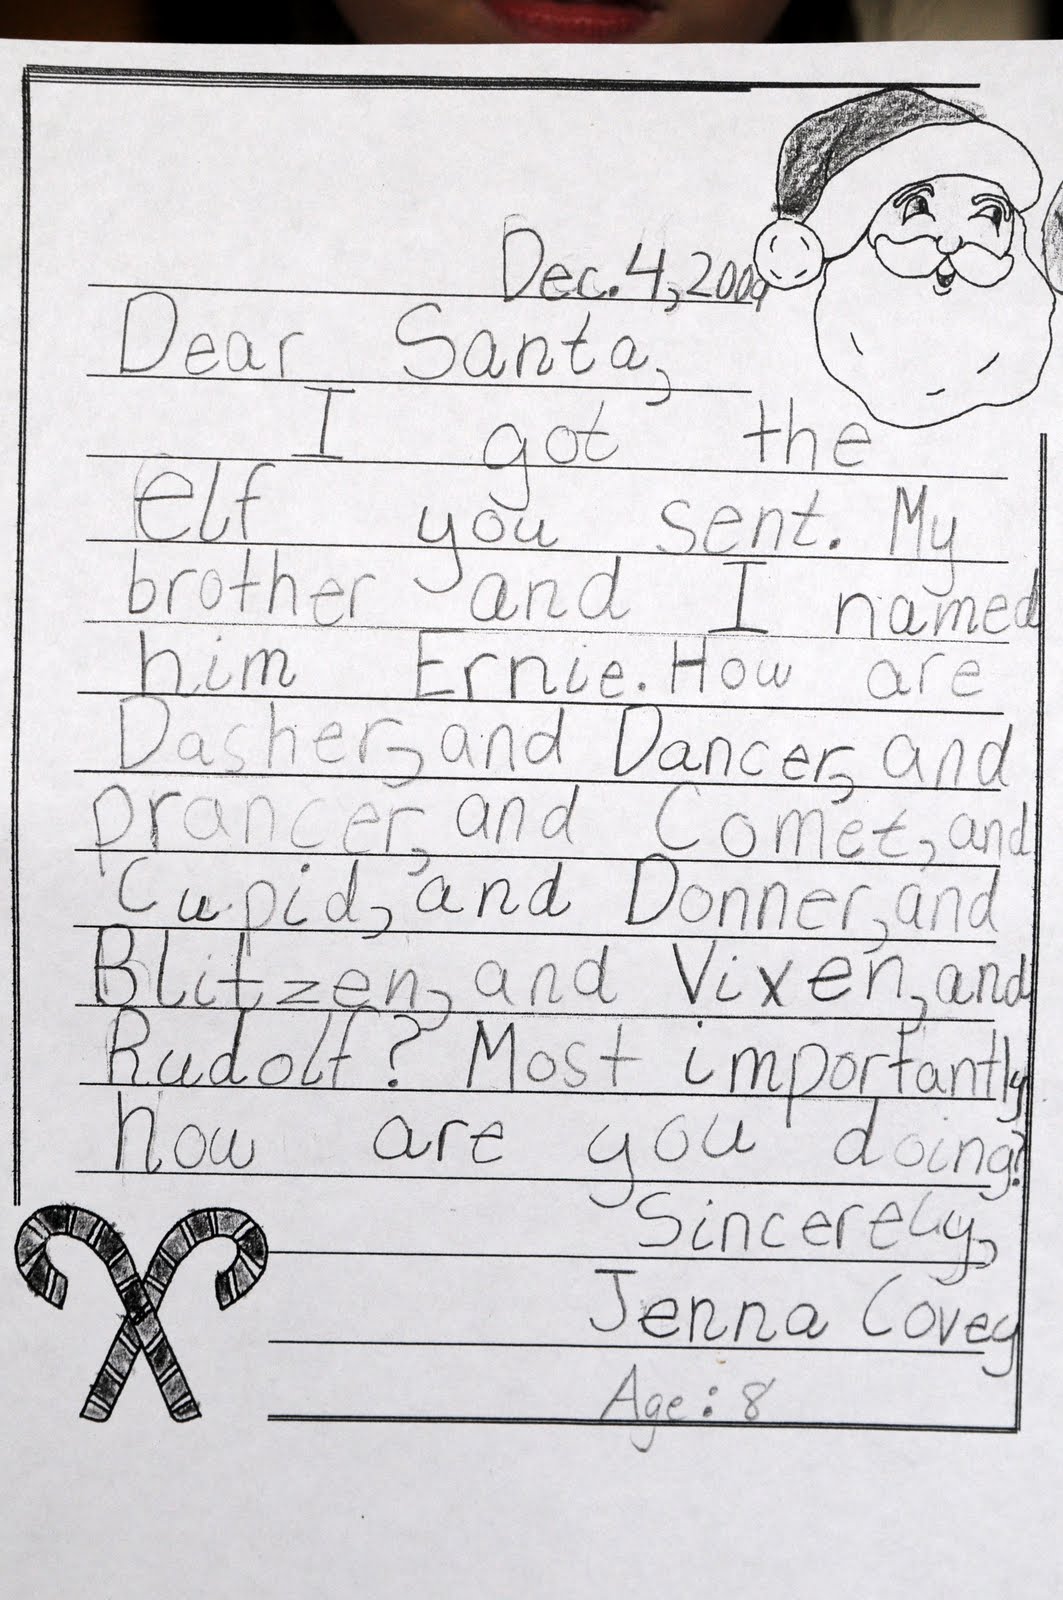 Dec. 4, 2009
Dear Santa,
I got the
elf you sent. My
brother and I named
him Ernie. How are
Dasher, and Dancer, and
prancer, and Comet, and
Cupid, and Donner, and
Blitzen, and Vixen, and
Rudolf? Most importantly
how are you doing?
Sincerely,
Jenna Covey
Age: 8